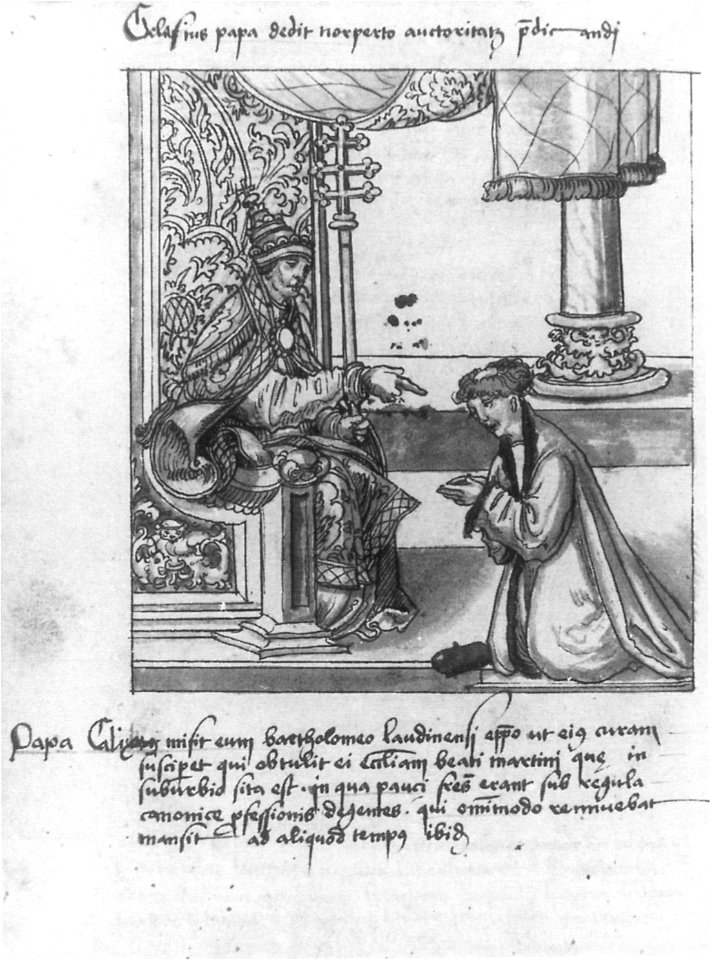 Gelasius papa dedit norperto auctoritatz pdicandi
Papa Calixtus misit eum bartholomeo laudinensi eppo ut eius curam
susciperet qui obtulit ei eccliam beati martini que in
suburbio sita est . in qua pauci fres erant sub regula
canonice pfessionis degentes . qui omimodo rennuebat
mansit ad aliquod tempus ibid